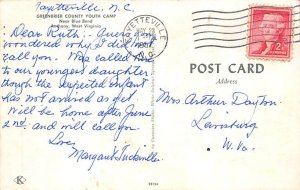 Fayetteville, N.C.
GREENBRIER COUNTY YOUTH CAMP
Near Blue Bend
Anthony, West Virginia
Dear Ruth: Guess you
wondered why I did not
call you. Was called
to our youngest daughter
though the expected infant
has not arrived as yet.
Will be home after June
2nd and will call you.
Love,
Margaret
POST CARD
Address
Mrs Arthur Dayton,
Lewisburg
W. Va.
2¢
K